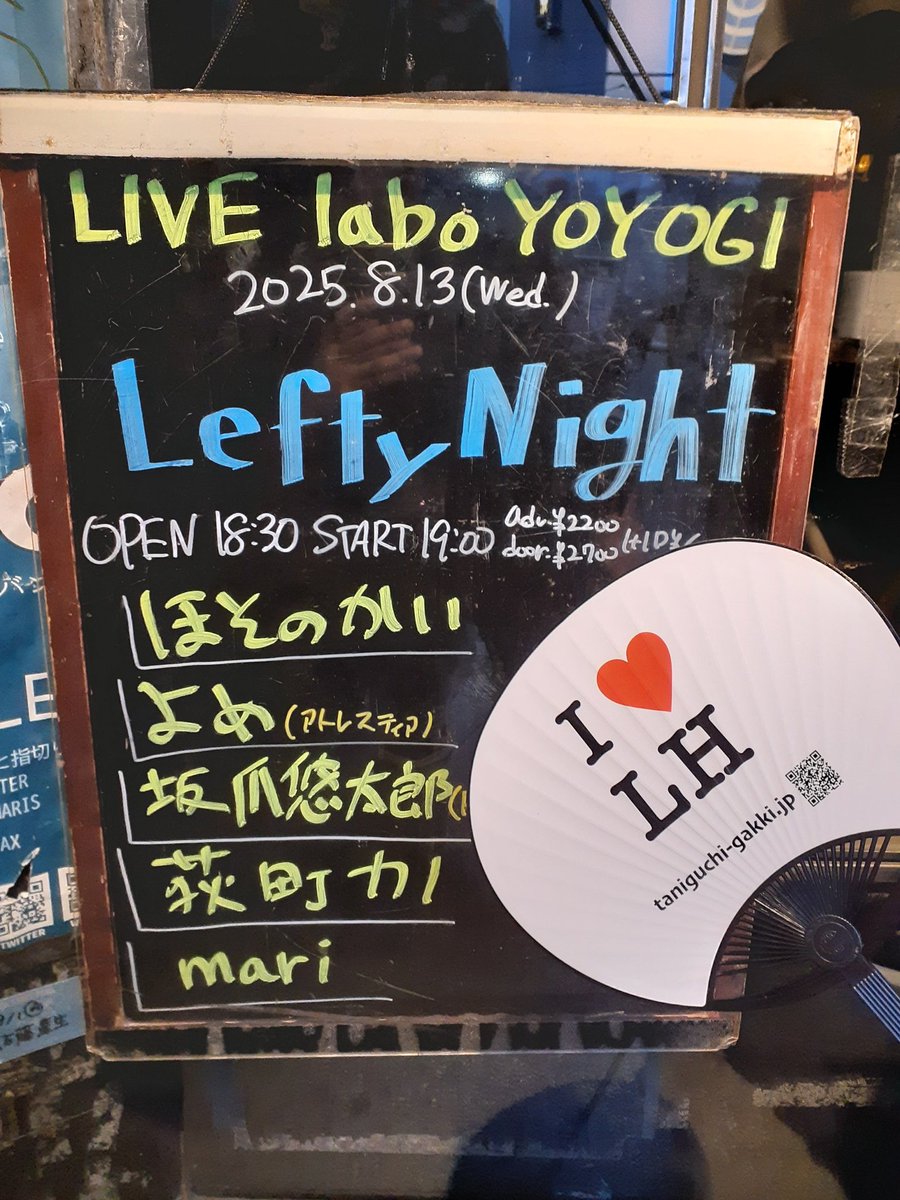 LIVE labo YOYOGI
2025.8.13(Wed.)
Lefty Night
OPEN 18:30 START 19:00
adv.¥2200
door.¥2700 (+1D
ほそのかい
よめ(アトレスティア)
坂爪悠太郎(
荻町カノ
mari
I ♥
LH
taniguchi-gakki.jp
と指切り
TER
MARIS
AX
TWITTER